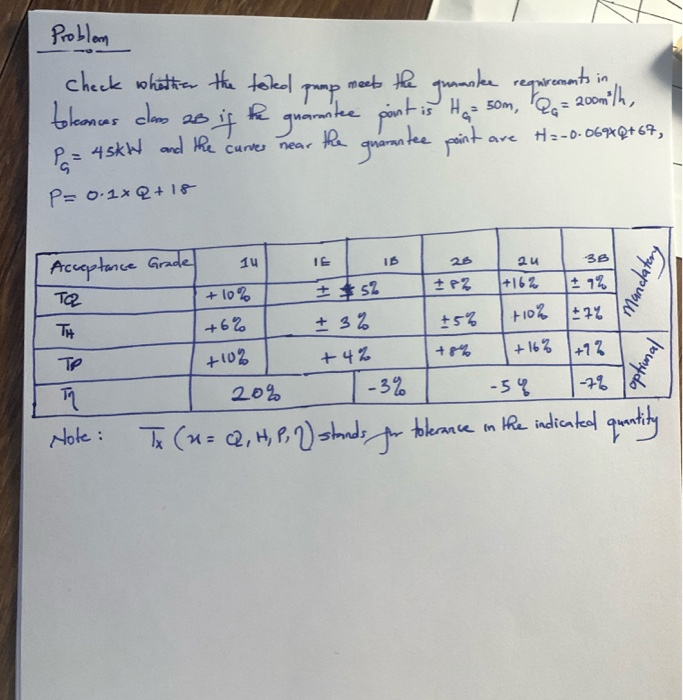 Problem
Check whether the tested pump meets the guarantee requirements in
tolerances class 2B if the guarantee point is H_G = 50m, Q_G = 200m³/h,
P_G = 45kW and the curves near the guarantee point are H=-0.069xQ+67,
P= 0.1xQ+18
Acceptance Grade 1U 1E 1B 2B 2U 3B Mandatory
TQ +10% ± 5% ±8% +16% ± 9%
TH +6% ± 3% ±5% +10% ±7%
TP +10% +4% +8% +16% +9% optional
Tη 20% -3% -5% -7%
Note: Tx (x = Q, H, P, η) stands for tolerance in the indicated quantity